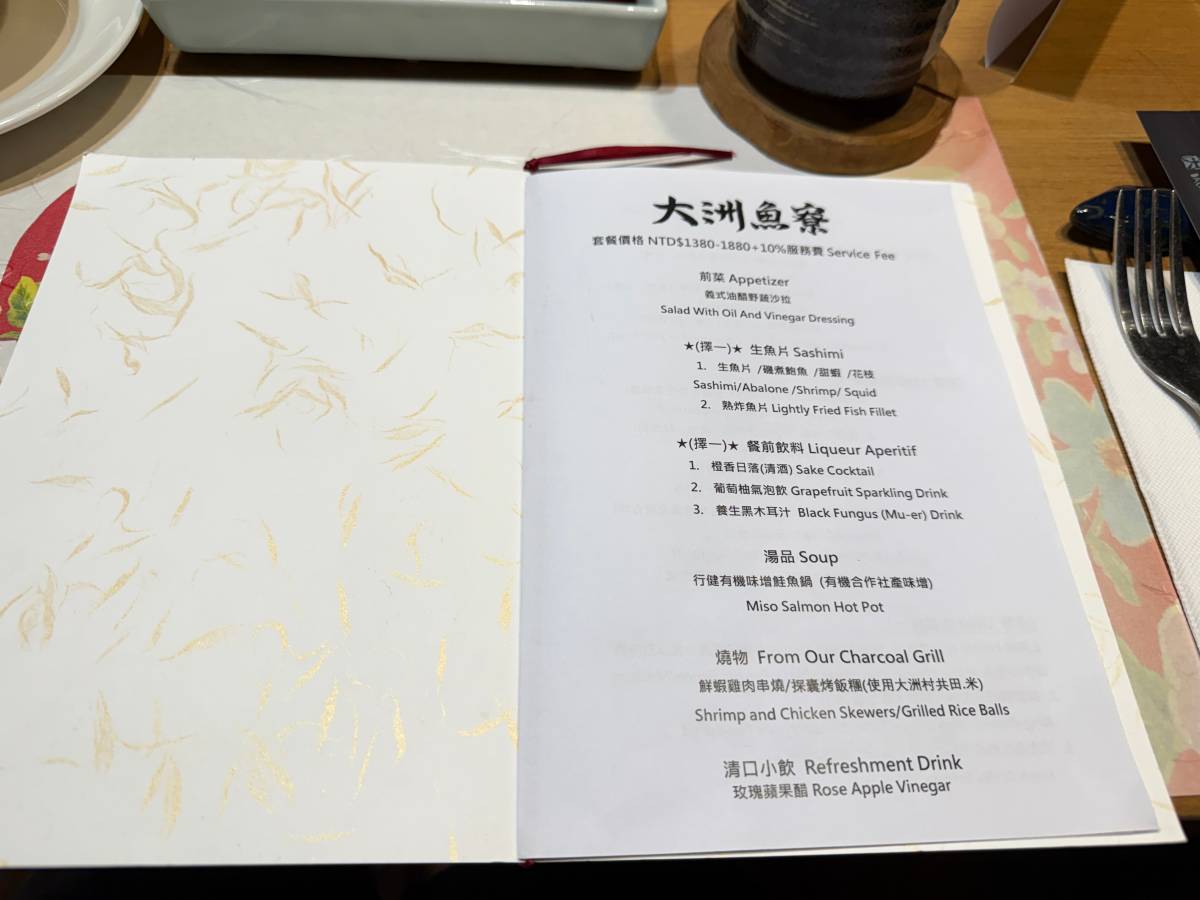 大洲魚寮
套餐價格 NTD$1380-1880+10%服務費 Service Fee
前菜 Appetizer
義式油醋野蔬沙拉
Salad With Oil And Vinegar Dressing
★(擇一)★ 生魚片 Sashimi
1. 生魚片 /磯煮鮑魚 /甜蝦 /花枝
Sashimi/Abalone /Shrimp/ Squid
2. 熟炸魚片 Lightly Fried Fish Fillet
★(擇一)★ 餐前飲料 Liqueur Aperitif
1. 橙香日落(清酒) Sake Cocktail
2. 葡萄柚氣泡飲 Grapefruit Sparkling Drink
3. 養生黑木耳汁 Black Fungus (Mu-er) Drink
湯品 Soup
行健有機味增鮭魚鍋 (有機合作社產味增)
Miso Salmon Hot Pot
燒物 From Our Charcoal Grill
鮮蝦雞肉串燒/探囊烤飯糰(使用大洲村共田.米)
Shrimp and Chicken Skewers/Grilled Rice Balls
清口小飲 Refreshment Drink
玫瑰蘋果醋 Rose Apple Vinegar